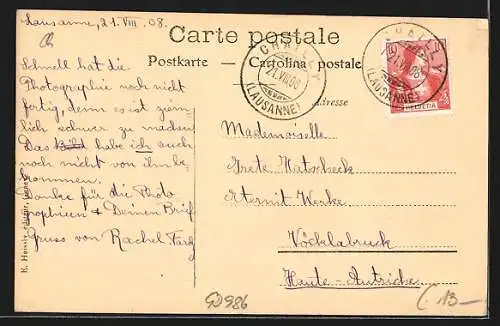 Lausanne, 21. VIII. 08.
Carte postale
Postkarte — Cartolina postale
Adresse
CHAILLY
21.VIII.08
(LAUSANNE)
CHAILLY
21.VIII.08
(LAUSANNE)
HELVETIA
Schnell hat die
Photographie noch nicht
fertig, denn es ist ziem-
lich schwer zu machen.
Das Bild habe ich auch
noch nicht von ihm be-
kommen.
Danke für die Photo
graphieen & Deinen Brief
Gruss von Rachel
Mademoiselle
Grete Hatscheck
Eternit Werke
Vöcklabruck
Haute-Autriche
E.
GD986
(13-